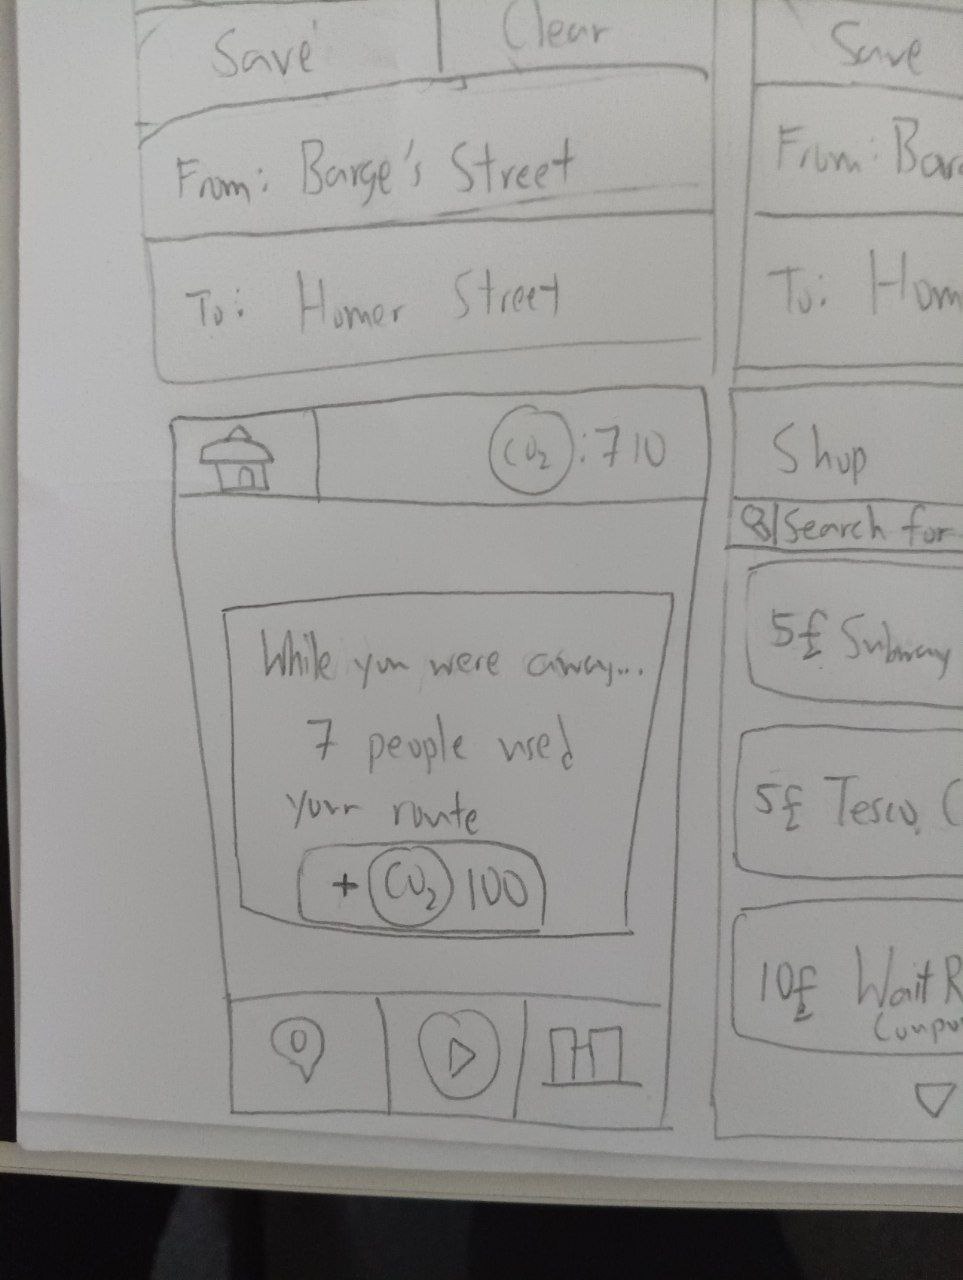 Save
Clear
From: Barge's Street
To: Homer Street
CO₂:710
While you were away...
7 people used
your route
+ CO₂ 100
Save
From: Bar
To: Hom
Shop
Search for
5£ Subway
5£ Tesco, C
10£ Wait R
Coupo